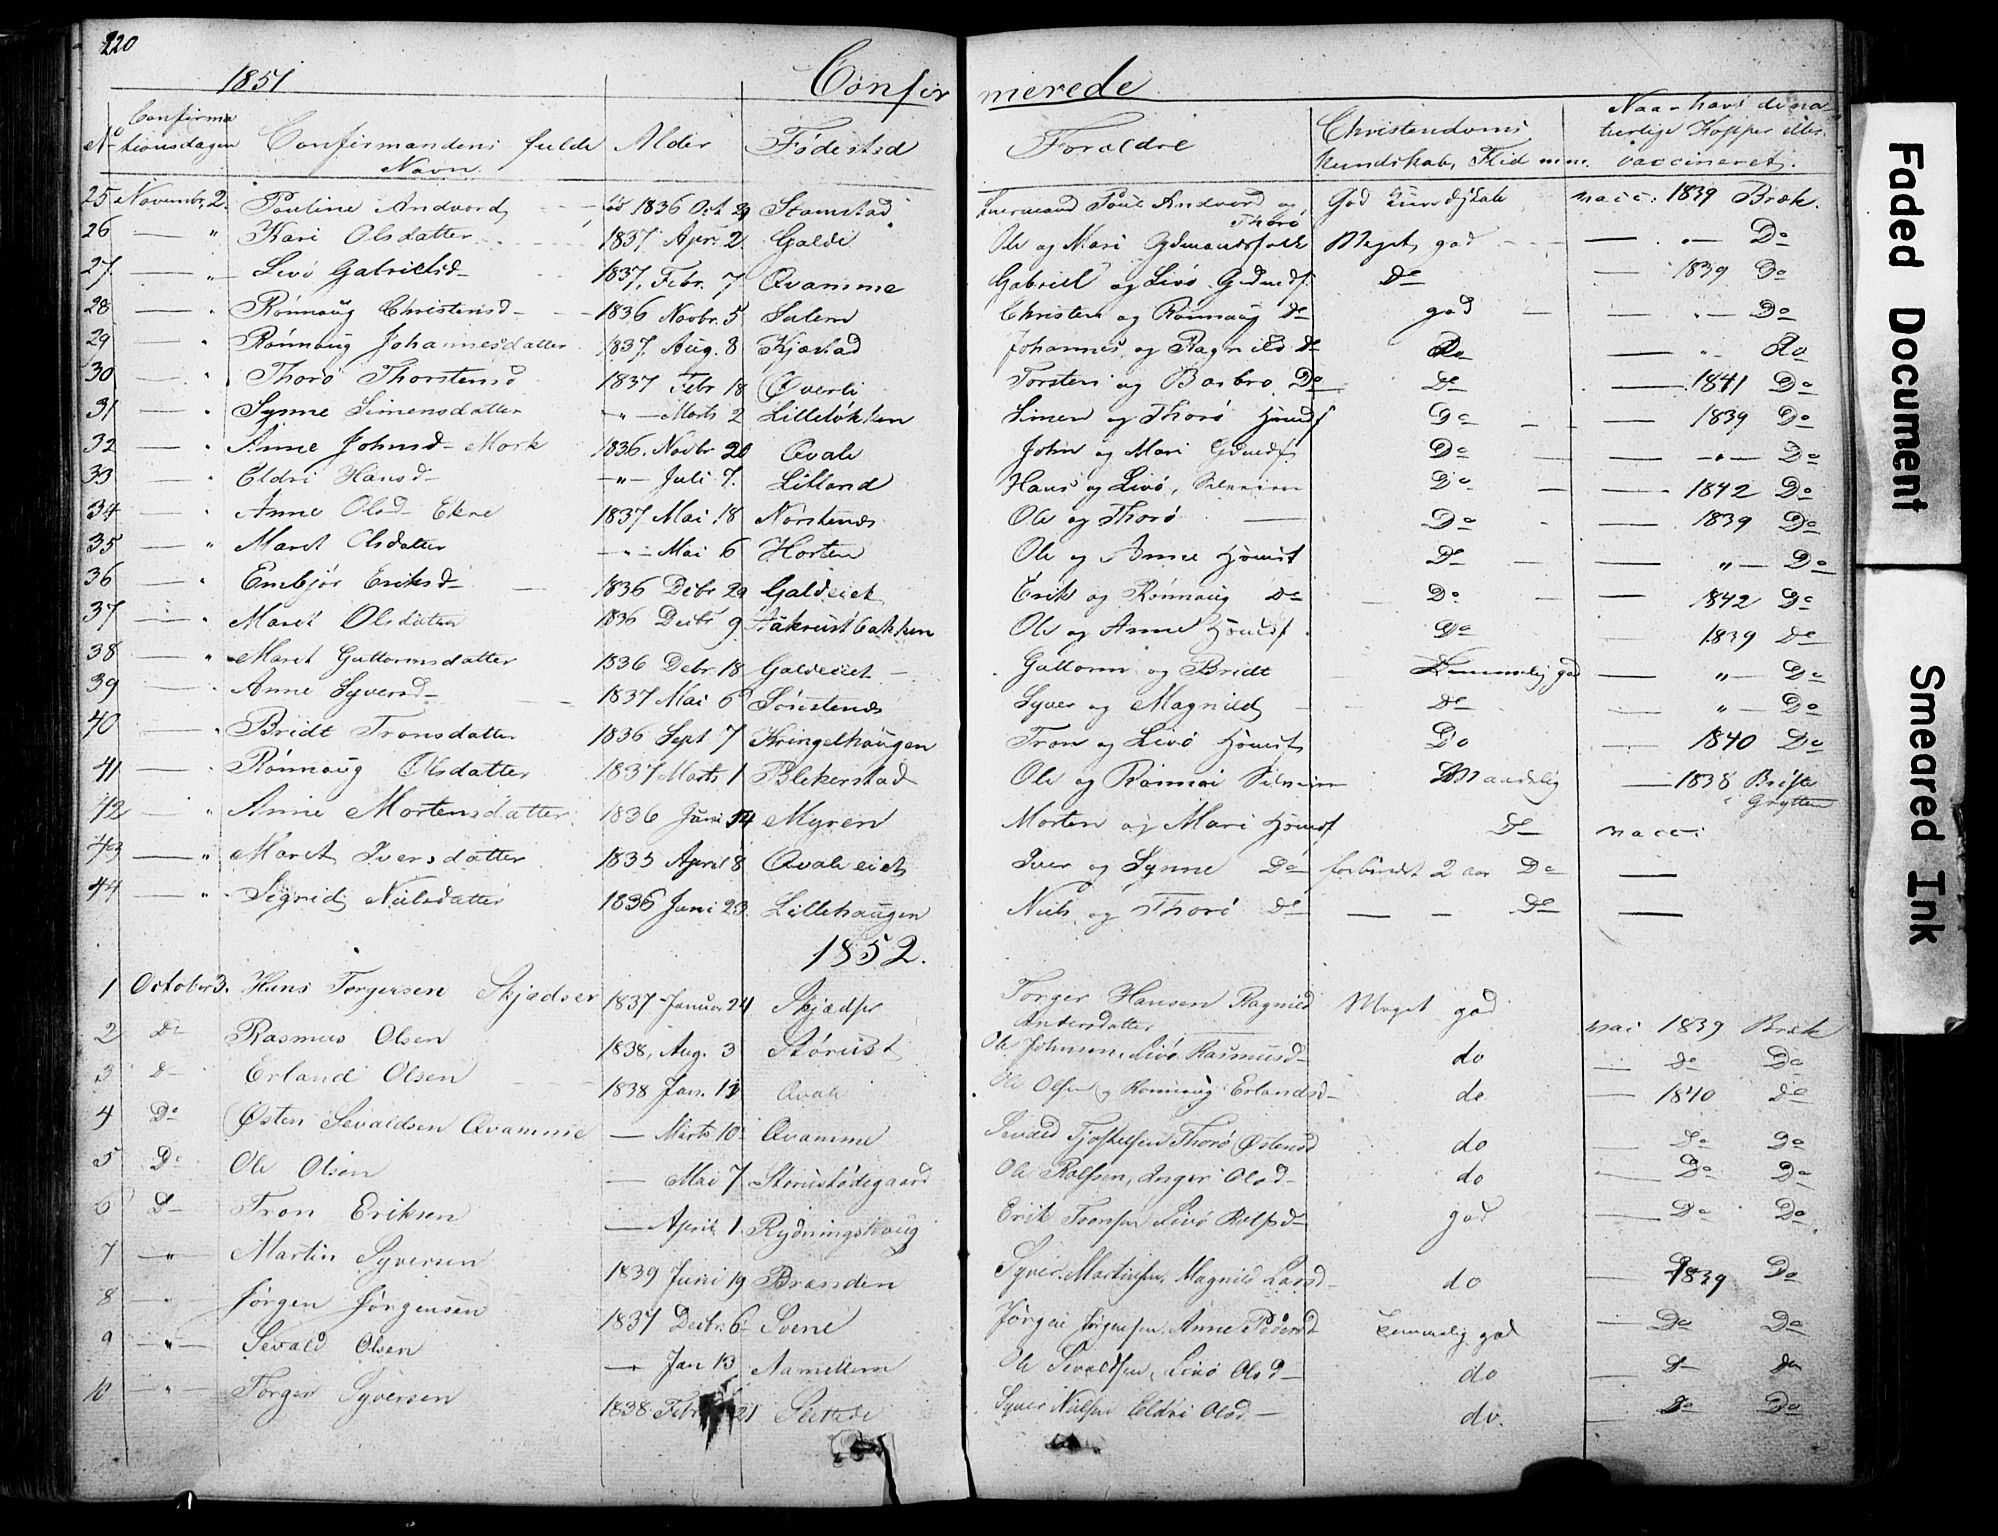 220
1851 Confirmerede
No Confirmationsdagen Confirmandens fulde Navn Alder Fødested Forældre Christendoms kundskab, Flid mm. Naar havt de naturlige Kopper eller vaccineret.
25 Novembr. 2. Pauline Andvord 1836 Oct Stamstad Poul Andvord og Thorø God Kundskab vacc. 1839 Bræk.
26 — " Kari Olsdatter 1837 Apr. 2 Galde Ole og Mari Gdmandsfolk Meget god — " — Do
27 — " Livø Gabrielsd 1837, Febr. 7 Qvamme Gabriel og Livø Gdmdf. Do — 1839 Do
28 — " Rønnaug Christensd 1836 Novbr. 5 Sulem Christen og Rønnaug Do god — " — Do
29 — " Rønnaug Johannesdatter 1837 Aug. 8 Kjæstad Johannes og Ragnild Do Do — " Do
30 — " Thorø Thorstensd 1837 Febr 18 Øverli Torsten og Barbro Do Do — 1841 Do
31 — " Synne Simensdatter — " — Marts 2 Lilleløkken Simen og Thorø Huusmf Do — 1839 Do
32 — " Anne Johnsd Mork 1836. Novbr 20 Qvale John og Mari Gdmdf. Do — " — Do
33 " Eldri Hansd — " — Juli 7. Lilland Hans og Livø, Do — 1842 Do
34 — " Anne Olsd Ekre 1837 Mai 18 Norstenes Ole og Thorø — Do — 1839 Do
35 — " Maret Olsdatter — " — Mai 6 Horten Ole og Anne Huusmf Do " — Do
36 — " Embjør Eriksd 1836 Decbr 29 Galdeeiet Erik og Rønnaug Do Do — 1842 Do
37 — " Marit Olsdatter 1836 Decbr 9 Aakrustbakken Ole og Anne Huusmf. Do 1839 Do
38 — " Maret Guttormsdatter 1836 Debr. 18 Galdeeiet Guttorm og Bridt Temmelig god — " — Do
39 — " Anne Syversd 1837 Mai 6 Sørstenes Syver og Magnild Do " — Do
40 — " Bridt Tronsdatter 1836 Sept 7 Kringelhaugen Tron og Livø Huusmf Do — 1840 Do
41 — " Rønnaug Olsdatter 1837 Marts 1 Blekerstad Ole og Maadelig — 1838 Grytten
42 — " Anne Mortensdatter 1836 Juni 14 Myren Morten og Mari Huusmf Do vacci
43 — " Maret Iversdatter 1835 April 8 Qvale eiet Iver og Synne Do forbiudt 2 aar Do —
44 — " Sigrid Nielsdatter 1836 Juni 23 Lillehaugen Niels og Thorø Do — — Do —
1852.
1 October 3. Hans Torgersen Skjædser 1837 Januar 24 Skjædser Torger Hansen Ragnild Andersdatter Meget god vac 1839 Bræk
2 Do Rasmus Olsen 1838, Aug. 3 Størust Ole Johnsen, Livø Rasmusd do — Do Do
3 Do Erland Olsen 1838 Jan. Qvale Ole Olsen og Rønnaug Erlandsd do — 1840 Do
4 Do Østen Sevaldsen Qvamme — Marts 10 Qvamme Sevald Thorø Østensd do Do Do
5 Do Ole Olsen — Mai 7 Størustødegaard Ole Rolfsen, Inger Olsd do Do Do
6 Do Tron Eriksen — April 1 Rydningshaug Erik Tronsen Livø Rolfsd god — Do Do
7 — " Martin Syversen 1839 Juni 19 Brænden Syver Martinsen, Magnild Larsd do — 1839 Do
8 — " Jørgen Jørgensen 1837 Decbr. 6 Svene Jørgen Jørgensen, Anne Pedersd Temmelig god — Do Do
9 — " Sevald Olsen — Jan 13 Ole Sevaldsen, Livø Olsd do Do Do
10 — " Torger Syversen 1838 Febr 21 Slettede Syver Nielsen Eldri Olsd do. Do Do
Faded Document
Smeared Ink